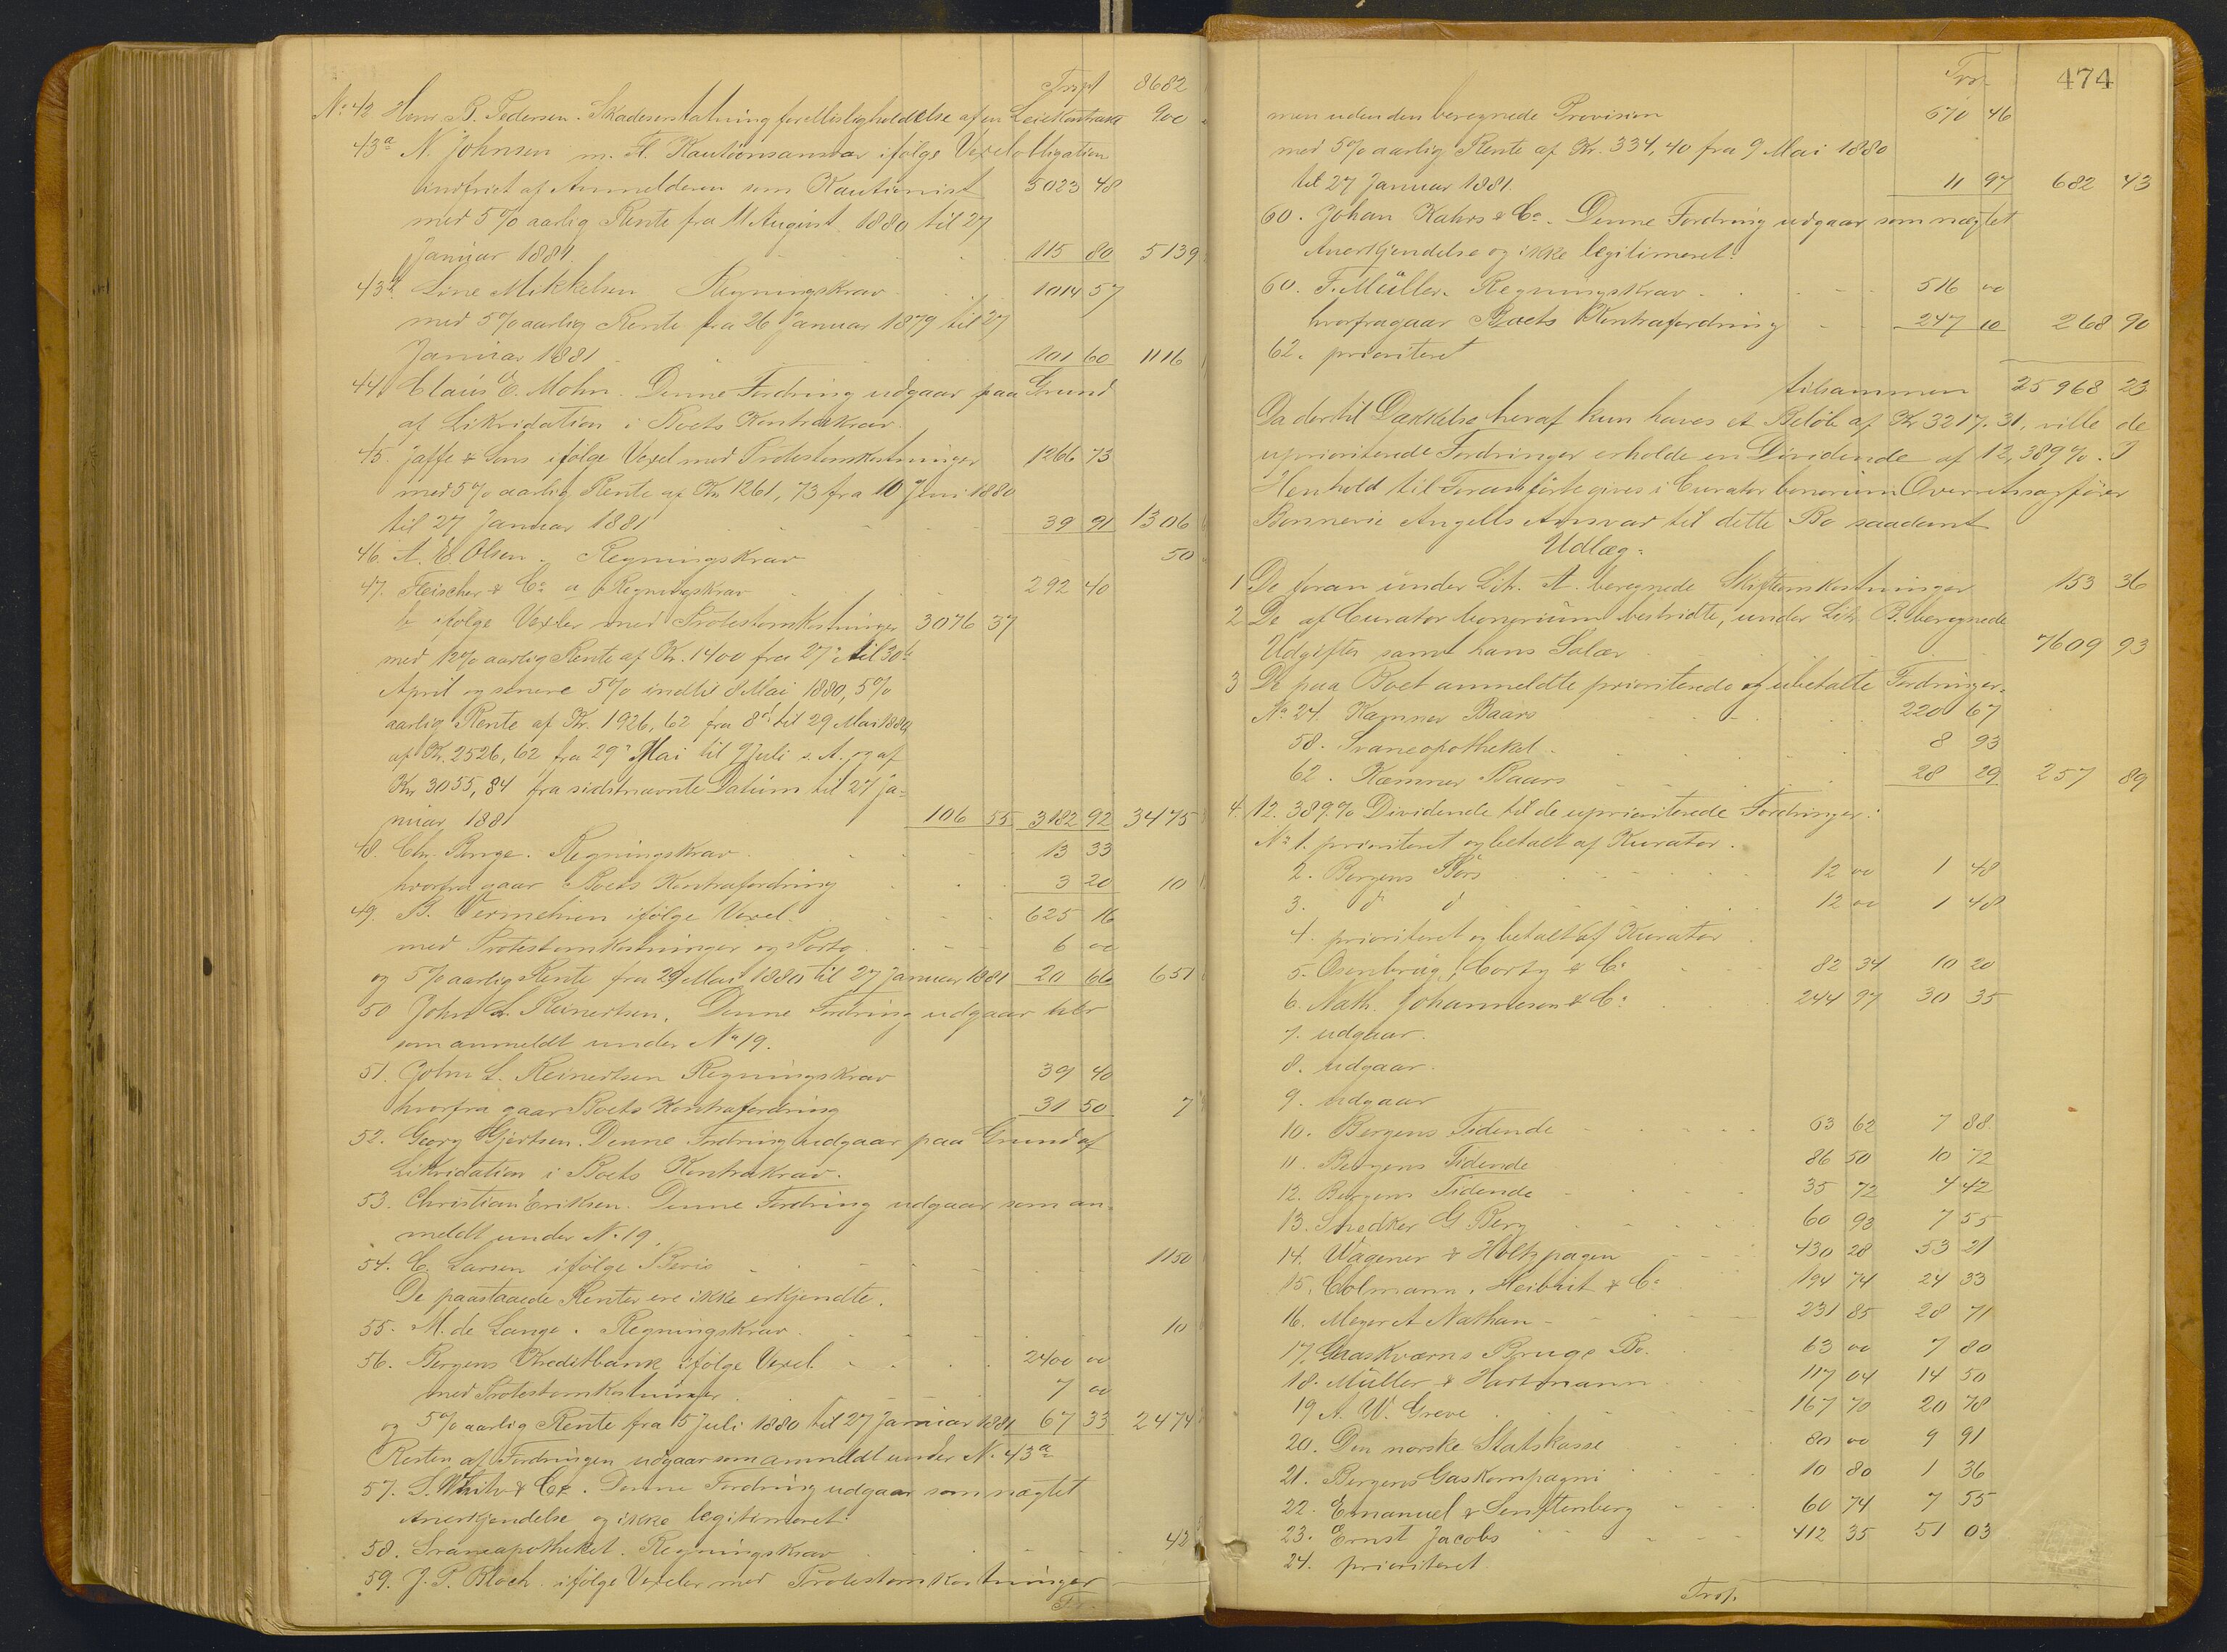 Trspt 8682
No 42 Hans B. Pedersen. Skadeserstatning for Misligholdelse af en Leiekontrakt 900
43a N. Johnsen m. Fl. Kautionsansvar ifølge Vexelobligation
indfriet af Anmelderen som Kautionist 5023 48
med 5% aarlig Rente fra 11 August 1880 til 27
Januar 1881. 115 80 5139
43b Line Mikkelsen Regningskrav 1014 57
med 5% aarlig Rente fra 26 Januar 1879 til 27
Januar 1881 101 60 1116
44. Claus E. Mohn. Denne Fordring udgaar paa Grund
af Likvidation i Boets Kontrakrav.
45. Jaffe & Sons ifølge Vexel med Protestomkostninger 1266 73
med 5% aarlig Rente af Kr 1261,73 fra 10 Juni 1880
til 27 Januar 1881 39 91 1306
46. A. E. Olsen. Regningskrav 50
47. Fleischer & Co a Regningskrav 292 40
b ifølge Vexler med Protestomkostninger 3076 37
med 12% aarlig Rente af Kr. 1400 fra 27de til 30te
April og senere 5% indtil 8 Mai 1880, 5%
aarlig Rente af Kr. 1926,62 fra 8de til 29 Mai 1880,
af Kr. 2526,62 fra 29de Mai til 9 Juli s. A. og af
Kr 3055,84 fra sidstnævnte Datum til 27 Ja-
nuar 1881 106 55 3182 92 3475
48. Chr. Berge. Regningskrav 13 33
hvorfra gaar Boets Kontrafordring 3 20 10
49. B. Vermehren ifølge Vexel. 625 16
med Protestomkostninger og Porto 6 00
og 5% aarlig Rente fra 29 Mai 1880 til 27 Januar 1881 20 66 651
50 John L. Reinertsen. Denne Fordring udgaar her
som anmeldt under No 19.
51. John L. Reinertsen Regningskrav 39 40
hvorfra gaar Boets Kontrafordring 31 50 7
52. Georg Gjertsen. Denne Fordring udgaar paa Grund af
Likvidation i Boets Kontrakrav.
53. Christian Eriksen. Denne Fordring udgaar som an-
meldt under No 19.
54. C. Larsen ifølge Bevis 1150
De paastaaede Renter ere ikke erkjendte.
55. M. de Lange. Regningskrav. 10
56. Bergens Kreditbank ifølge Vexel 2400 00
med Protestomkostninger 7 00
og 5% aarlig Rente fra 5 Juli 1880 til 27 Januar 1881 67 33 2474
Resten af Fordringen udgaar som anmeldt under No 43a
57. S. White & Co. Denne Fordring udgaar som nægtet
Anerkjendelse og ikke legitimeret.
58. Svaneapotheket. Regningskrav 42
59. J. P. Bloch ifølge Vexeler med Protestomkostninger
Tr.
474
Trsp.
men uden den beregnede Provision 670 46
med 5% aarlig Rente af Kr. 334,40 fra 9 Mai 1880
til 27 Januar 1881. 11 97 682 43
60. Johan Kahrs & Co. Denne Fordring udgaar som nægtet
Anerkjendelse og ikke legitimeret.
60. F. Müller. Regningskrav 516 00
hvorfra gaar Boets Kontrafordring 247 10 268 90
62. prioriteret
tilsammen 25968 23
Da der til Dækkelse heraf kun haves et Beløb af Kr 3217.31, ville de
uprioriterede Fordringer erholde en Dividende af 12,389%. I
Henhold til Foranførte gives i Curator bonorum Overretssagfører
Bonnevie Angells Ansvar til dette Bo saadant
Udlæg:
1 De foran under Litr. A. beregnede Skifteomkostninger 153 36
2 De af Curator bonorum bestridte, under Litr B. beregnede
Udgifter samt hans Salær 7609 93
3 De paa Boet anmeldte prioriterede og ubetalte Fordringer.
No 24. Kæmner Baars 220 67
58. Svaneapotheket 8 93
62. Kæmner Baars 28 29 257 89
4. 12.389% Dividende til de uprioriterede Fordringer:
No 1. prioriteret og betalt af Kurator.
2. Bergens Børs 12 00 1 48
3. do do 12 00 1 48
4. prioriteret og betalt af Kurator
5. Osenbrüg, Corty & Co 82 34 10 20
6. Nath. Johannesen & Co 244 97 30 35
7. udgaar.
8. udgaar.
9. udgaar
10. Bergens Tidende 63 62 7 88
11. Bergens Tidende 86 50 10 72
12. Bergens Tidende 35 72 4 42
13. Snedker G Berg 60 93 7 55
14. Wagener & Holtzpagen 430 28 53 21
15. Colmann, Heibhit & Co 194 74 24 33
16. Meyer A Nathan 231 85 28 71
17. Graaskværns Brugs Bo. 63 00 7 80
18. Müller & Hartmann 117 04 14 50
19 A. W. Greve 167 70 20 78
20. Den norske Statskasse 80 00 9 91
21. Bergens Gaskompagni 10 80 1 36
22. Emanuel & Senftenberg 60 74 7 55
23. Ernst Jacobs 412 35 51 03
24. prioriteret
Trsp.